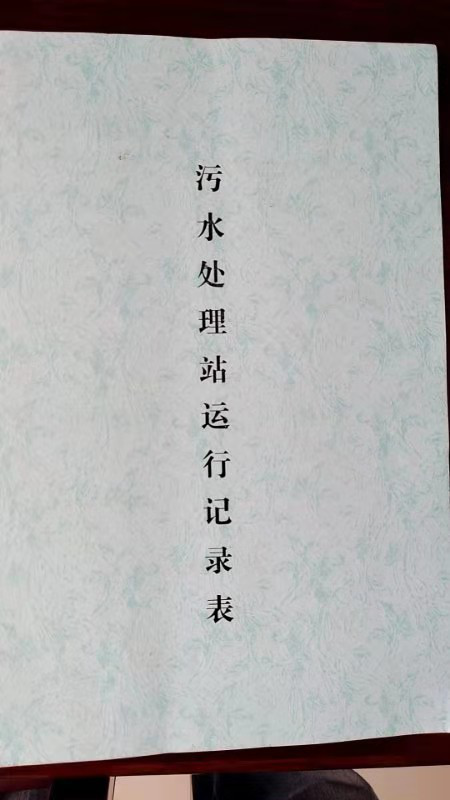 污水处理站运行记录表